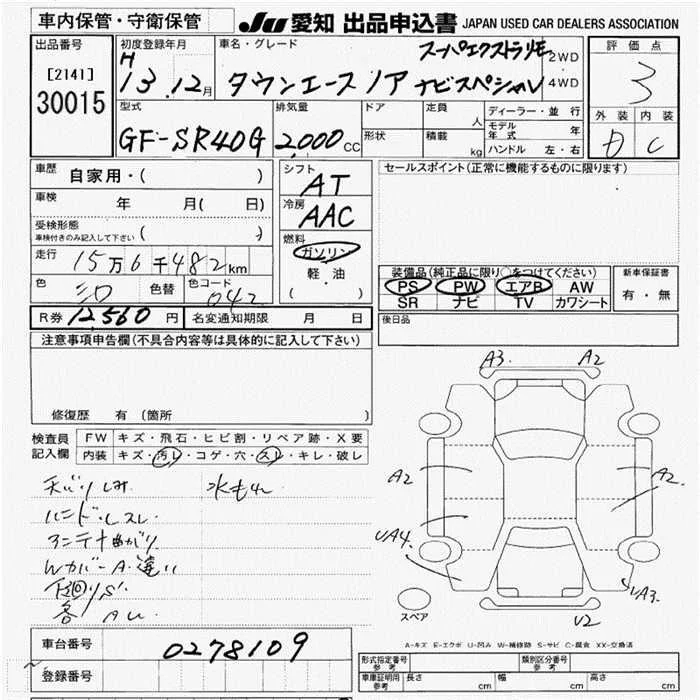 車内保管・守衛保管
JU 愛知 出品申込書 JAPAN USED CAR DEALERS ASSOCIATION
出品番号
[2141]
30015
初度登録年月
H
13.12月
車名・グレード
スーパーエクストラリモ
タウンエースノア ナビスペシャル
2WD
4WD
評価点
3
外装 内装
D C
型式
GF-SR40G
排気量
2,000 CC
ドア
形状
定員
人
積載
kg
ディーラー・並行
モデル年式 年
ハンドル 左・右
車歴
自家用・( )
車検
年 月( 日)
受検形態
車検付きのみ記入して下さい ( )
走行
15万6千482km
色
シロ
色替
色コード
042
シフト
AT
冷房
AAC
燃料
ガソリン
軽・油
( )
セールスポイント(正常に機能するものに限ります)
装備品(純正品に限り○をつけてください)
PS PW エアB AW
SR ナビ TV カワシート
新車保証書
有・無
R券 12,560 円
名変通知期限 月 日
後日品
注意事項申告欄(不具合内容等は具体的に記入して下さい)
修復歴 有(箇所 )
検査員
記入欄
FW キズ・飛石・ヒビ割・リペア跡・X要
内装 キズ・汚レ・コゲ・穴・スレ・キレ・破レ
天バリしみ 水もれ
ハンドルスレ
アンテナ曲がり
WカバーA・違い
下廻りS
各 AU
A3. A2
A2
A2
UA4.
UA3.
U2
スペア
A-キズ E-エクボ U-凹み W-補修跡 S-サビ C-腐食 XX-交換済
車台番号
0278109
登録番号
形式指定番号 参考
類別区分番号 参考
車庫証明用 参考
長さ cm 幅 cm 高さ cm